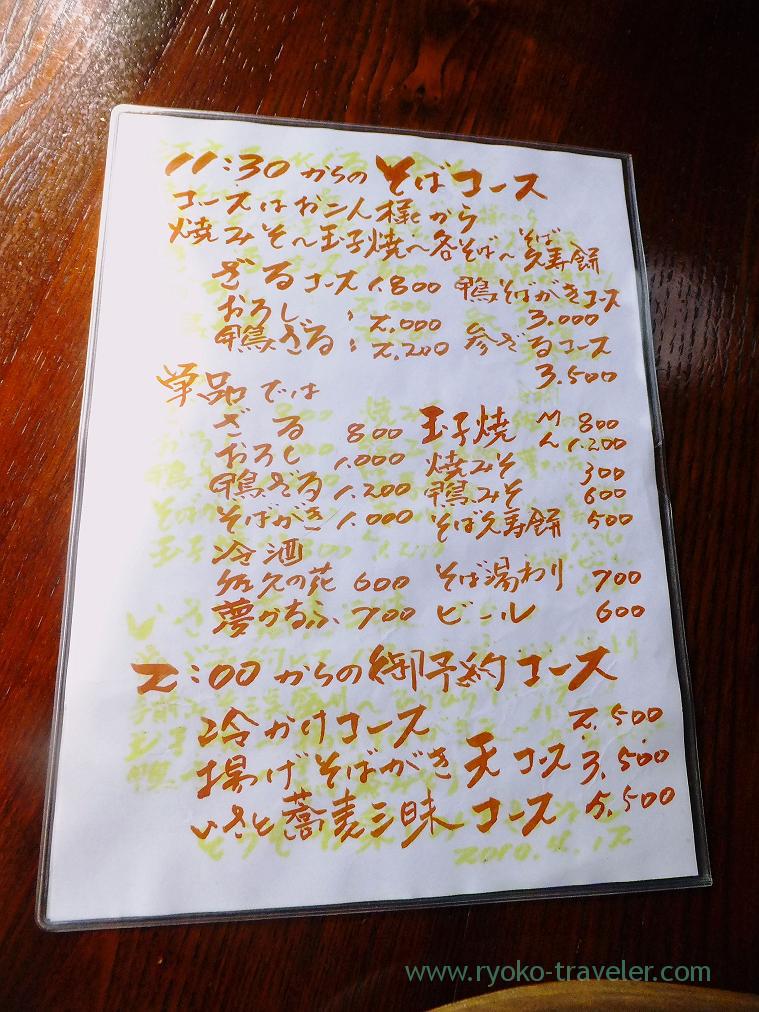 11:30 からの そば コース
コースはお二人様から
焼みそ〜玉子焼〜各そば〜そば久寿餅
ざるコース 1.800 鴨そばがきコース
おろし 〃 2.000 3.000
鴨ざる 〃 2.200 参ざるコース
3.500
単品では
ざる 800 玉子焼 M 800
おろし 1.000 L 1.200
鴨ざる 1.200 焼みそ 300
そばがき 1.000 鴨みそ 600
そば久寿餅 500
冷酒
佐久の花 600 そば湯わり 700
夢かるふ 700 ビール 600
2:00 からの御予約コース
冷かけコース 2.500
揚げそばがき天コース 3.500
いさと蕎麦三昧コース 5.500
2010.4.12
www.ryoko-traveler.com